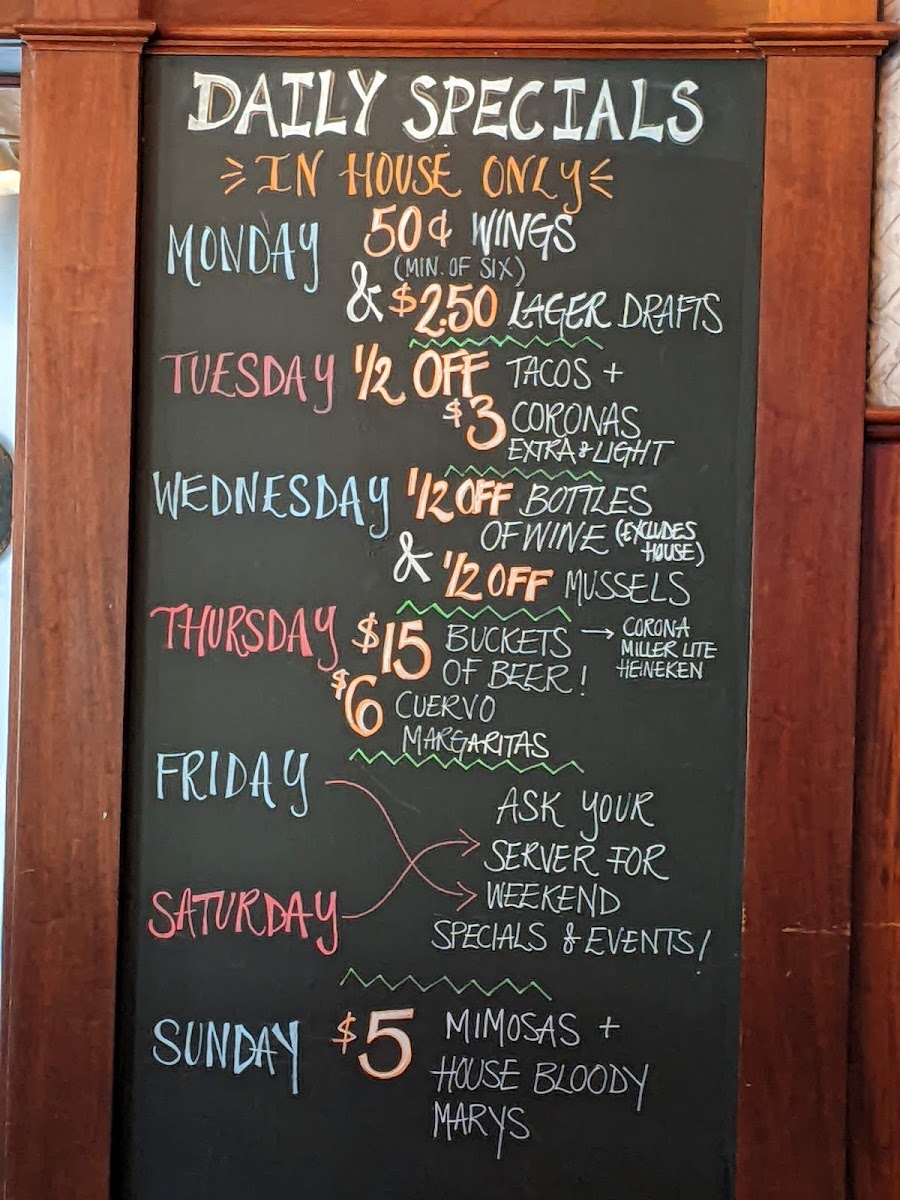 DAILY SPECIALS
IN HOUSE ONLY
MONDAY 50¢ WINGS
(MIN. OF SIX)
& $2.50 LAGER DRAFTS
TUESDAY 1/2 OFF TACOS +
$3 CORONAS
EXTRA & LIGHT
WEDNESDAY 1/2 OFF BOTTLES
OF WINE (EXCLUDES
HOUSE)
& 1/2 OFF MUSSELS
THURSDAY $15 BUCKETS → CORONA
MILLER LITE
OF BEER! HEINEKEN
$6 CUERVO
MARGARITAS
FRIDAY
ASK YOUR
SERVER FOR
SATURDAY WEEKEND
SPECIALS & EVENTS!
SUNDAY $5 MIMOSAS +
HOUSE BLOODY
MARYS